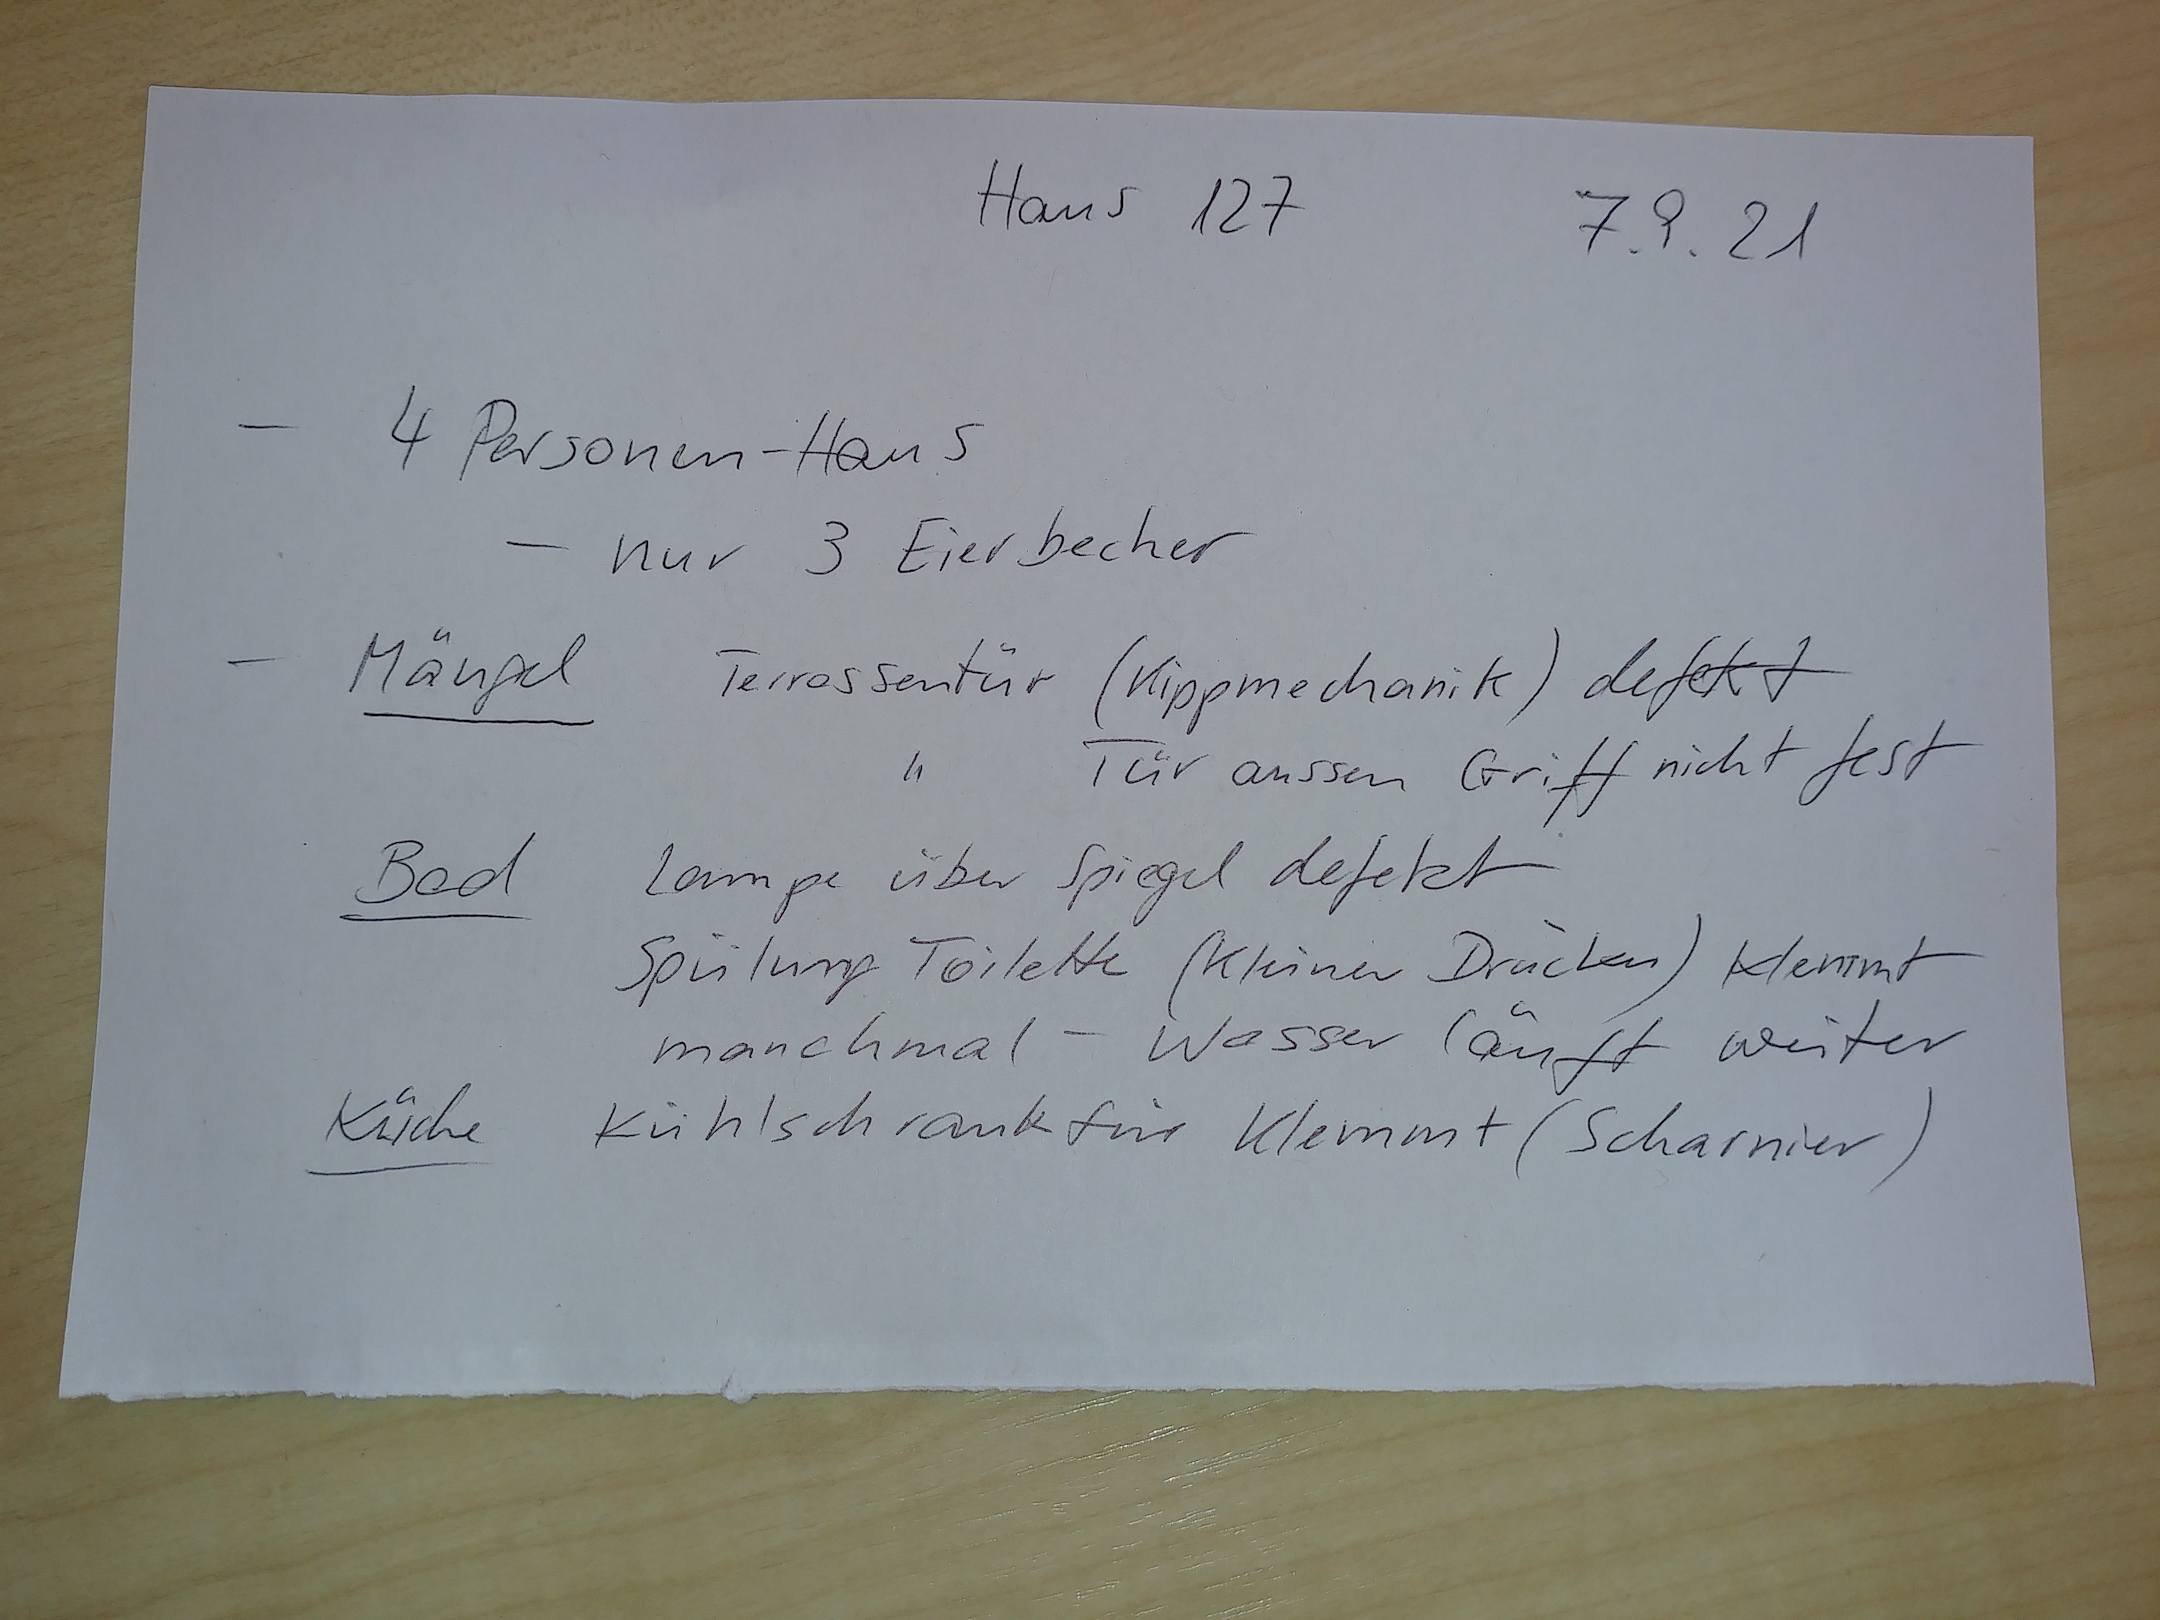 Haus 127 7.9.21
- 4 Personen-Haus
- nur 3 Eierbecher
- Mängel Terrassentür (Kippmechanik) defekt
" Tür aussen Griff nicht fest
Bad Lampe über Spiegel defekt
Spülung Toilette (kleiner Drücker) klemmt
manchmal - Wasser läuft weiter
Küche Kühlschranktür klemmt (Scharnier)